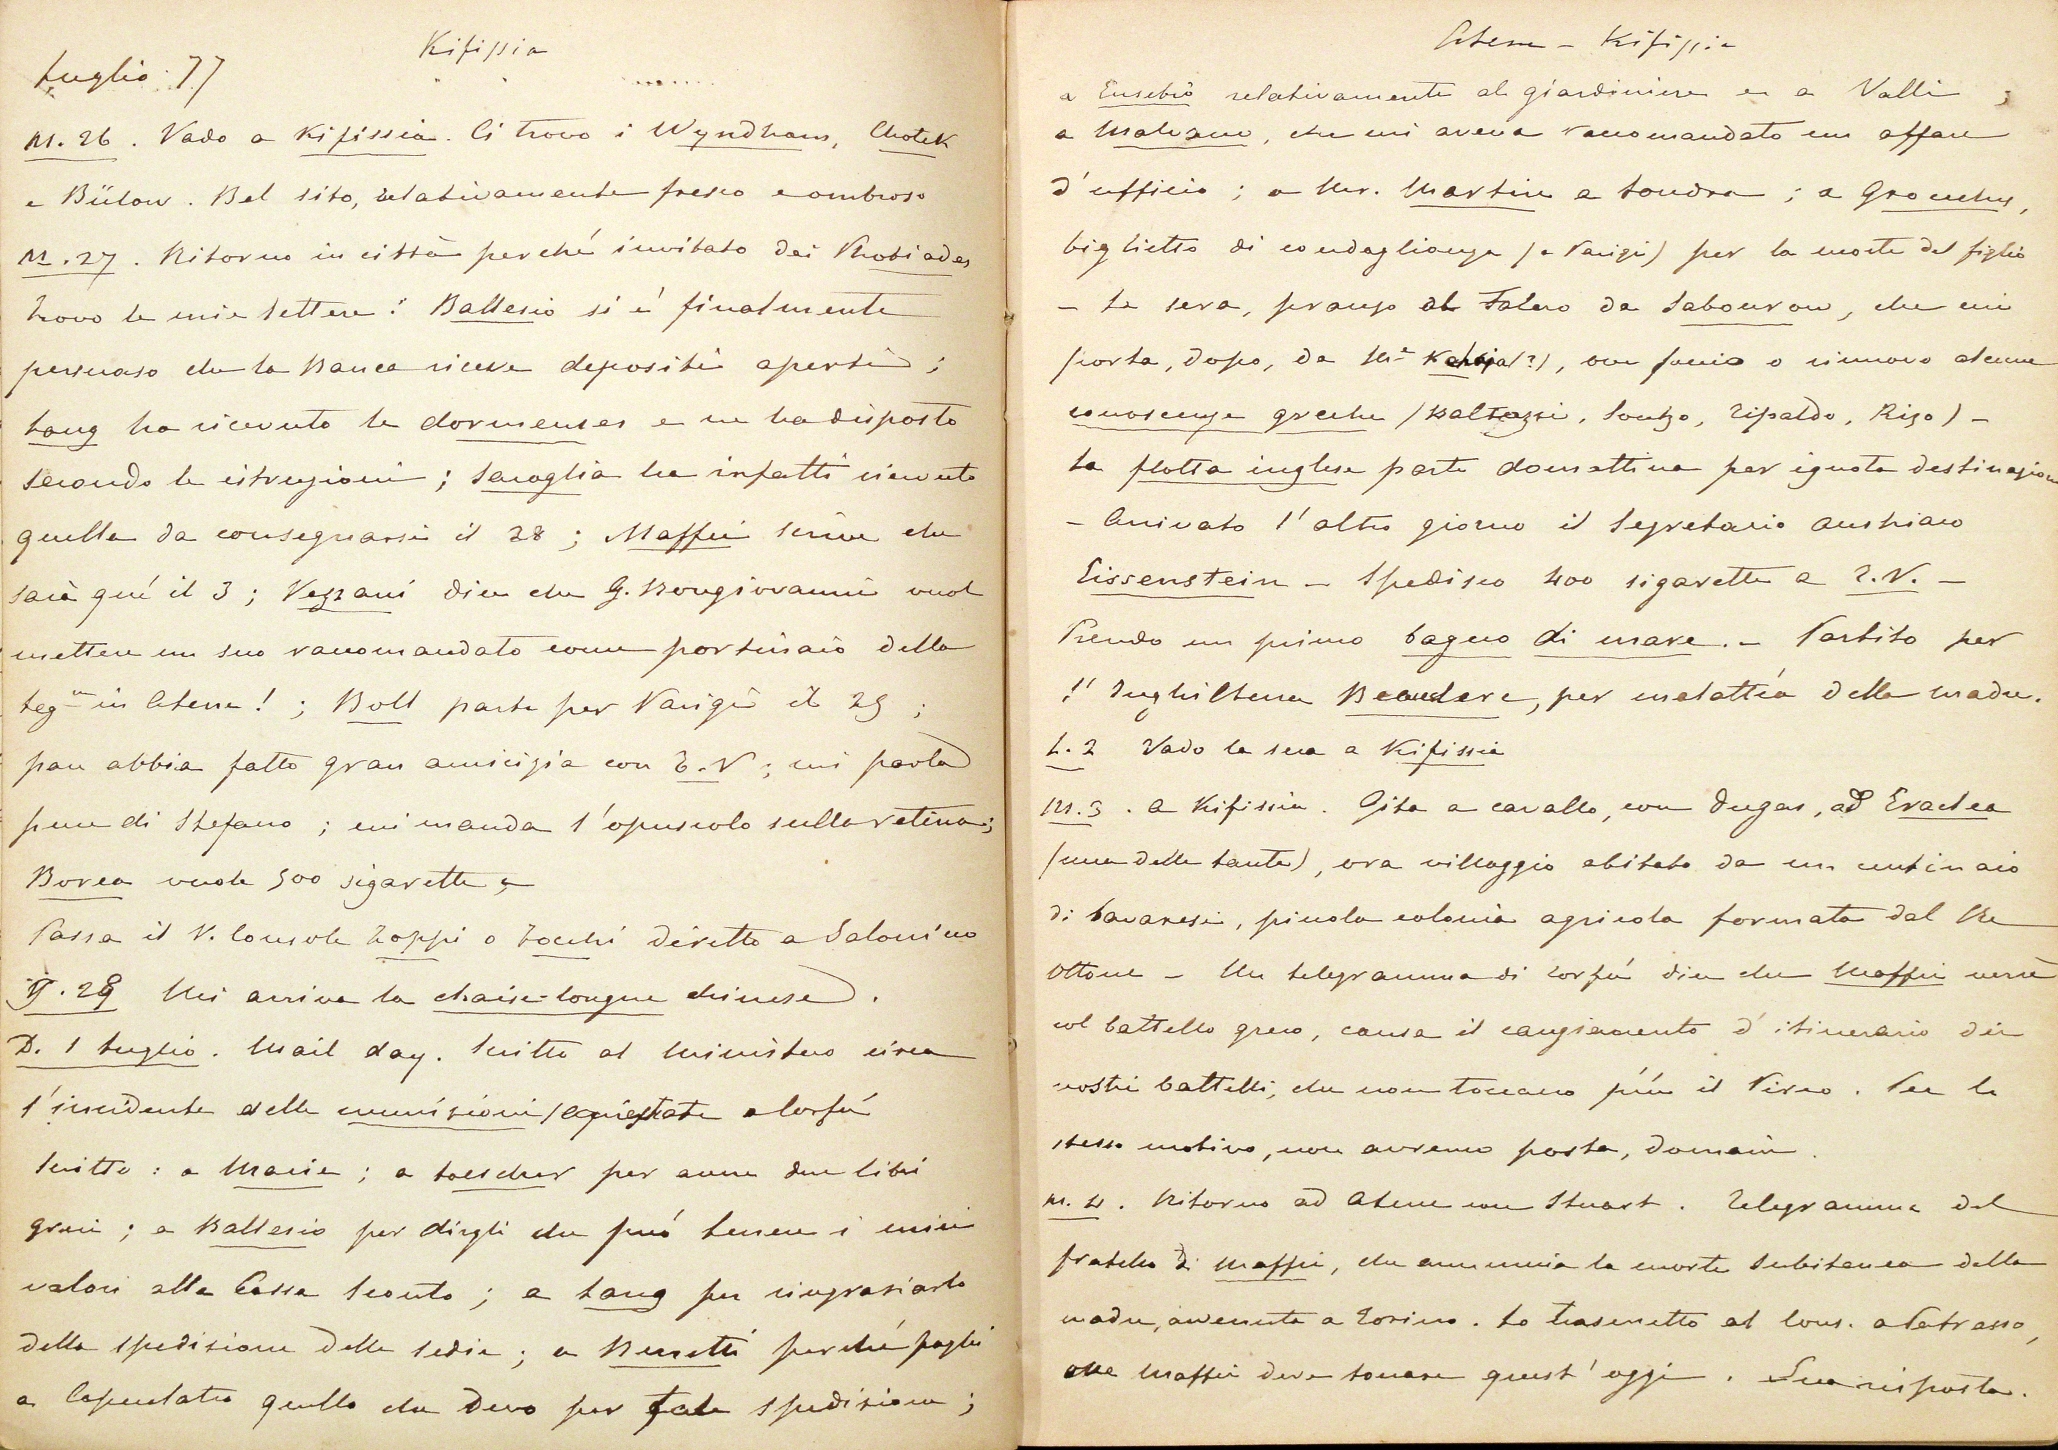 Kifissia
Luglio 77
M. 26. Vado a Kifissia. Ci trovo i Wyndham, Chotek
e Bülow. Bel sito, relativamente fresco e ombroso
M. 27. Ritorno in città perché invitato dai Rhotiades
Trovo le mie lettere: Ballesio si è finalmente
persuaso che la Banca riceve depositi aperti;
Lang ha ricevuto le dormeuses e ne ha disposto
secondo le istruzioni; Savoglia ha infatti ricevuto
quella da consegnarsi il 28; Maffei scrive che
sarà qui il 3; Vezzani dice che G. Bongiovanni vuol
mettere un suo raccomandato come portinaio della
Legne in Atene!; Boll parte per Parigi il 29;
pare abbia fatto gran amicizia con T.V; mi parla
pure di Stefano; mi manda l'opuscolo sulla retina;
Borea vuole 500 sigarette
Passa il V. Console Zoppi o Zocchi diretto a Salonicco
G. 28 Mi arriva la chaise-longue chinese.
D. 1 Luglio. Mail day. Scritto al Ministero circa
l'incidente delle munizioni (acquistate a Corfù
Scritto: a Maria; a Loescher per avere due libri
greci; a Ballesio per dirgli che può tenere i miei
valori alla Cassa Sconto; a Lang per ringraziarlo
della spedizione delle sedie; a Berretti perché paghi
a Capulatro quello che devo per tale spedizione;
Atene - Kifissia
a Eusebio relativamente al giardiniere e a Valli;
a Malvano, che mi aveva raccomandato un affare
d'ufficio; a Mr. Martin a Londra; a
biglietto di condoglianza (a Parigi) per la morte del figlio
- La sera, pranzo al Falero da Sabourow, che mi
porta, dopo, da Me (?), ove faccio o rinnovo alcune
conoscenze greche (Baltazzi, Soutzo, Ripaldo, Rizo) -
La flotta inglese parte domattina per ignota destinazione
- Arrivato l'altro giorno il Segretario austriaco
Eissenstein - Spedisco 400 sigarette a T.V. -
Prendo un primo bagno di mare. - Partito per
l'Inghilterra Beauclerc, per malattia della madre.
L. 2 Vado la sera a Kifissia
M. 3. a Kifissia. Gita a cavallo, con Dugas, ad Eraclea
(una delle tante), ora villaggio abitato da un centinaio
di bavaresi, piccola colonia agricola formata dal Re
Ottone - Un telegramma di Corfù dice che Maffei verrà
col battello greco, causa il cangiamento d'itinerario dei
nostri battelli, che non toccano più il Pireo. Per lo
stesso motivo, non avremo posta, domani.
M. 4. Ritorno ad Atene con Stuart. Telegramma del
fratello di Maffei, che annunzia la morte subitanea della
madre, avvenuta a Torino. Lo trasmetto al Cons. a Patrasso,
ove Maffei deve toccare quest'oggi. Sua risposta.